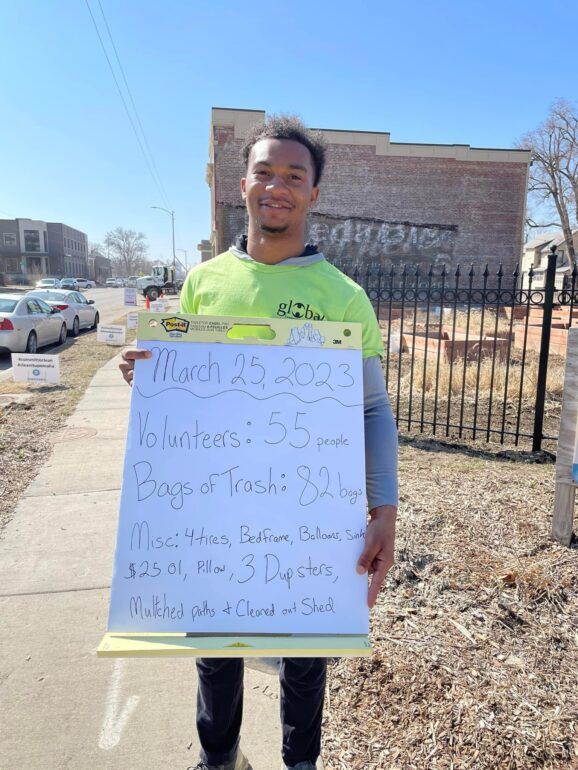 global
Post-it
3M
March 25, 2023
Volunteers: 55 people
Bags of Trash: 82 bags
Misc: 4 tires, Bedframe, Balloons, Sink
$25.01, Pillow, 3 Dupsters,
Multched paths & Cleaned out Shed
#committoclean
#cleanitupomaha